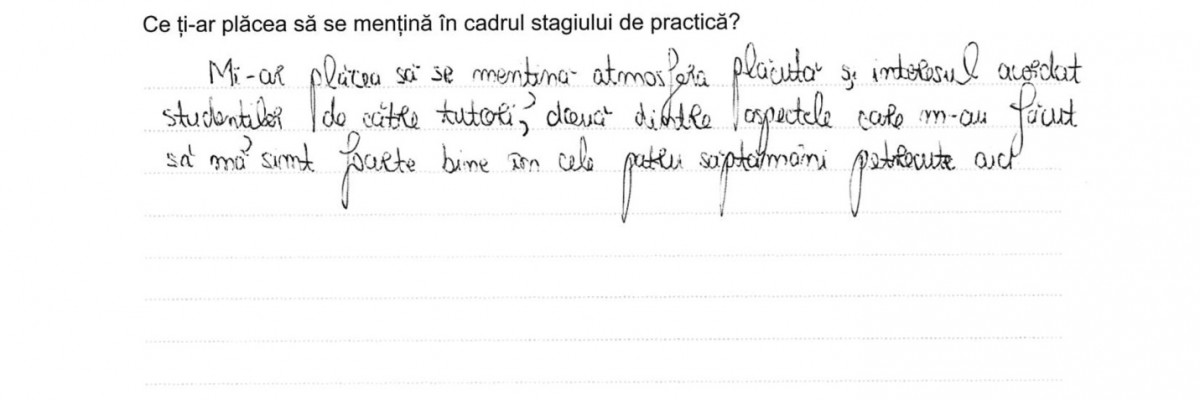 Ce ți-ar plăcea să se mențină în cadrul stagiului de practică?
Mi-ar plăcea să se mențină atmosfera plăcută și interesul acordat
studenților de către tutori, două dintre aspectele care m-au făcut
să mă simt foarte bine în cele patru săptămâni petrecute aici